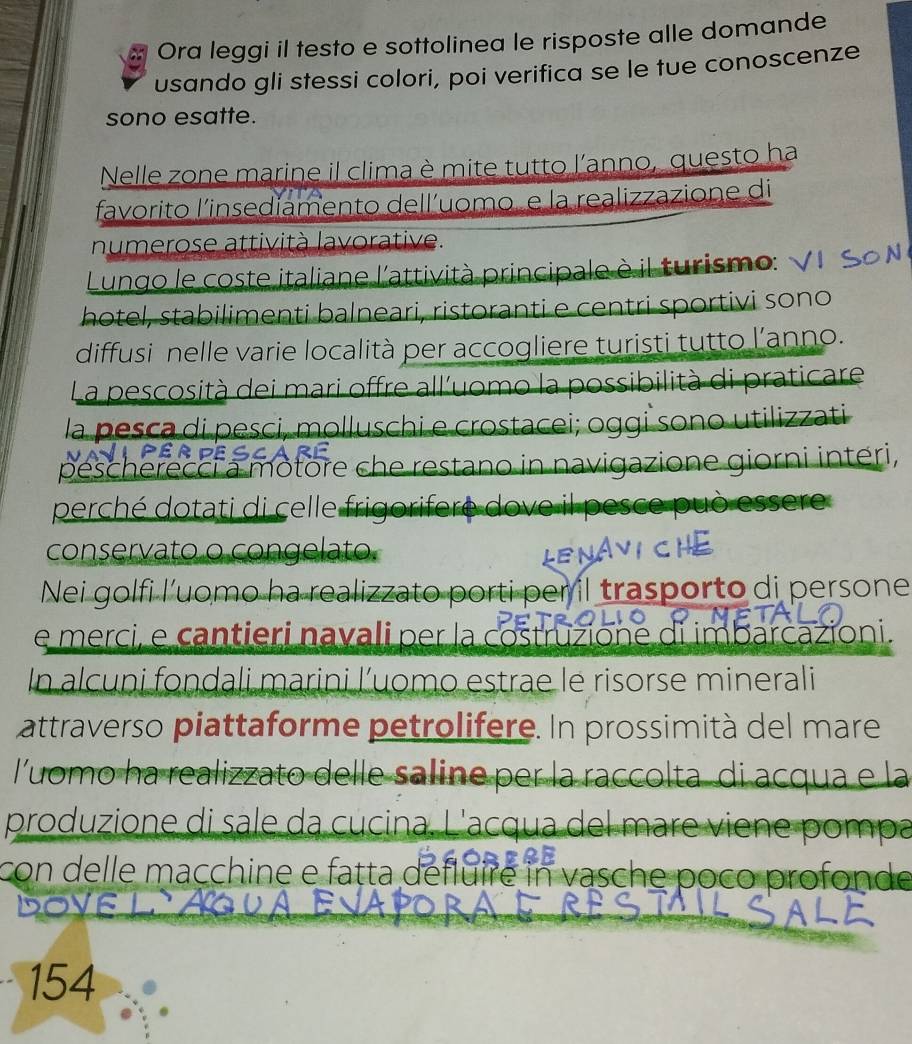 Ora leggi il testo e sottolinea le risposte alle domande
usando gli stessi colori, poi verifica se le tue conoscenze
sono esatte.
Nelle zone marine il clima è mite tutto l'anno, questo ha
VITA
favorito l'insediamento dell'uomo e la realizzazione di
numerose attività lavorative.
Lungo le coste italiane l'attività principale è il turismo: VI SON
hotel, stabilimenti balneari, ristoranti e centri sportivi sono
diffusi nelle varie località per accogliere turisti tutto l'anno.
La pescosità dei mari offre all'uomo la possibilità di praticare
la pesca di pesci, molluschi e crostacei; oggi sono utilizzati
NAVI PER PESCARE
pescherecci a motore che restano in navigazione giorni interi,
perché dotati di celle frigorifere dove il pesce può essere
conservato o congelato.
LENAVI CHE
Nei golfi l'uomo ha realizzato porti per il trasporto di persone
PETROLIO O METALO
e merci, e cantieri navali per la costruzione di imbarcazioni.
In alcuni fondali marini l'uomo estrae le risorse minerali
attraverso piattaforme petrolifere. In prossimità del mare
l'uomo ha realizzato delle saline per la raccolta di acqua e la
produzione di sale da cucina. L'acqua del mare viene pompa
SCORERE
con delle macchine e fatta defluire in vasche poco profonde
DOVE L'AQUA EVAPORA E RESTA IL SALE
154